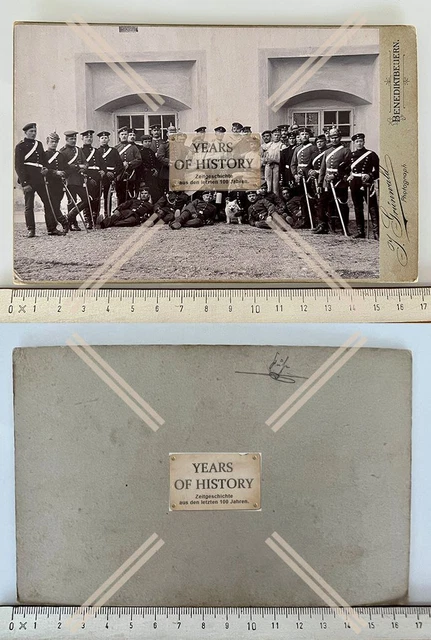 YEARS
OF HISTORY
Zeitgeschichte
aus den letzten 100 Jahren.
BENEDIKTBEUERN.
Photograph.
0 1 2 3 4 5 6 7 8 9 10 11 12 13 14 15 16 17
YEARS
OF HISTORY
Zeitgeschichte
aus den letzten 100 Jahren.
0 1 2 3 4 5 6 7 8 9 10 11 12 13 14 15 16 17